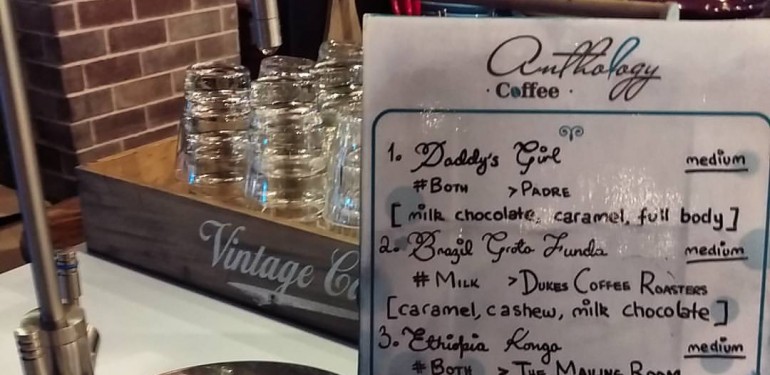 Anthology
· Coffee ·
1. Daddy's Girl medium
#BOTH >PADRE
[milk chocolate, caramel, full body]
2. Brazil Groto Funda medium
# MILK >DUKES COFFEE ROASTERS
[caramel, cashew, milk chocolate]
3. Ethiopia Konga medium
# BOTH > THE MAILING ROOM
Vintage